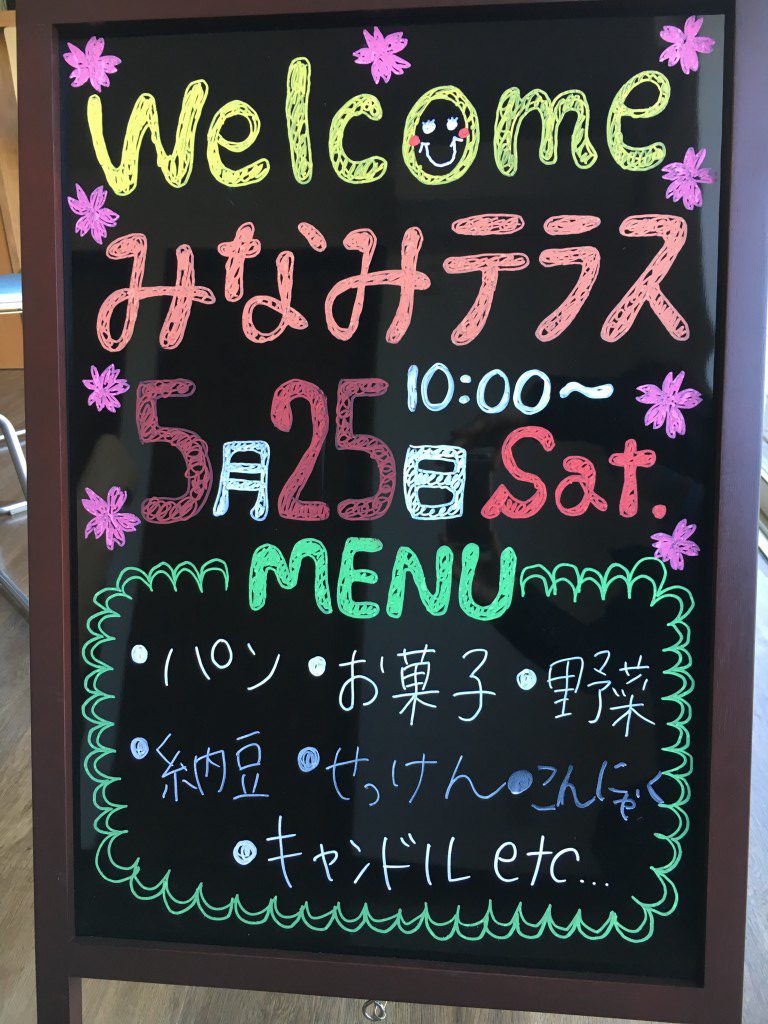 Welcome
みなみテラス
10:00〜
5月25日 Sat.
MENU
・パン ・お菓子 ・野菜
・納豆 ・せっけん ・こんにゃく
・キャンドル etc...